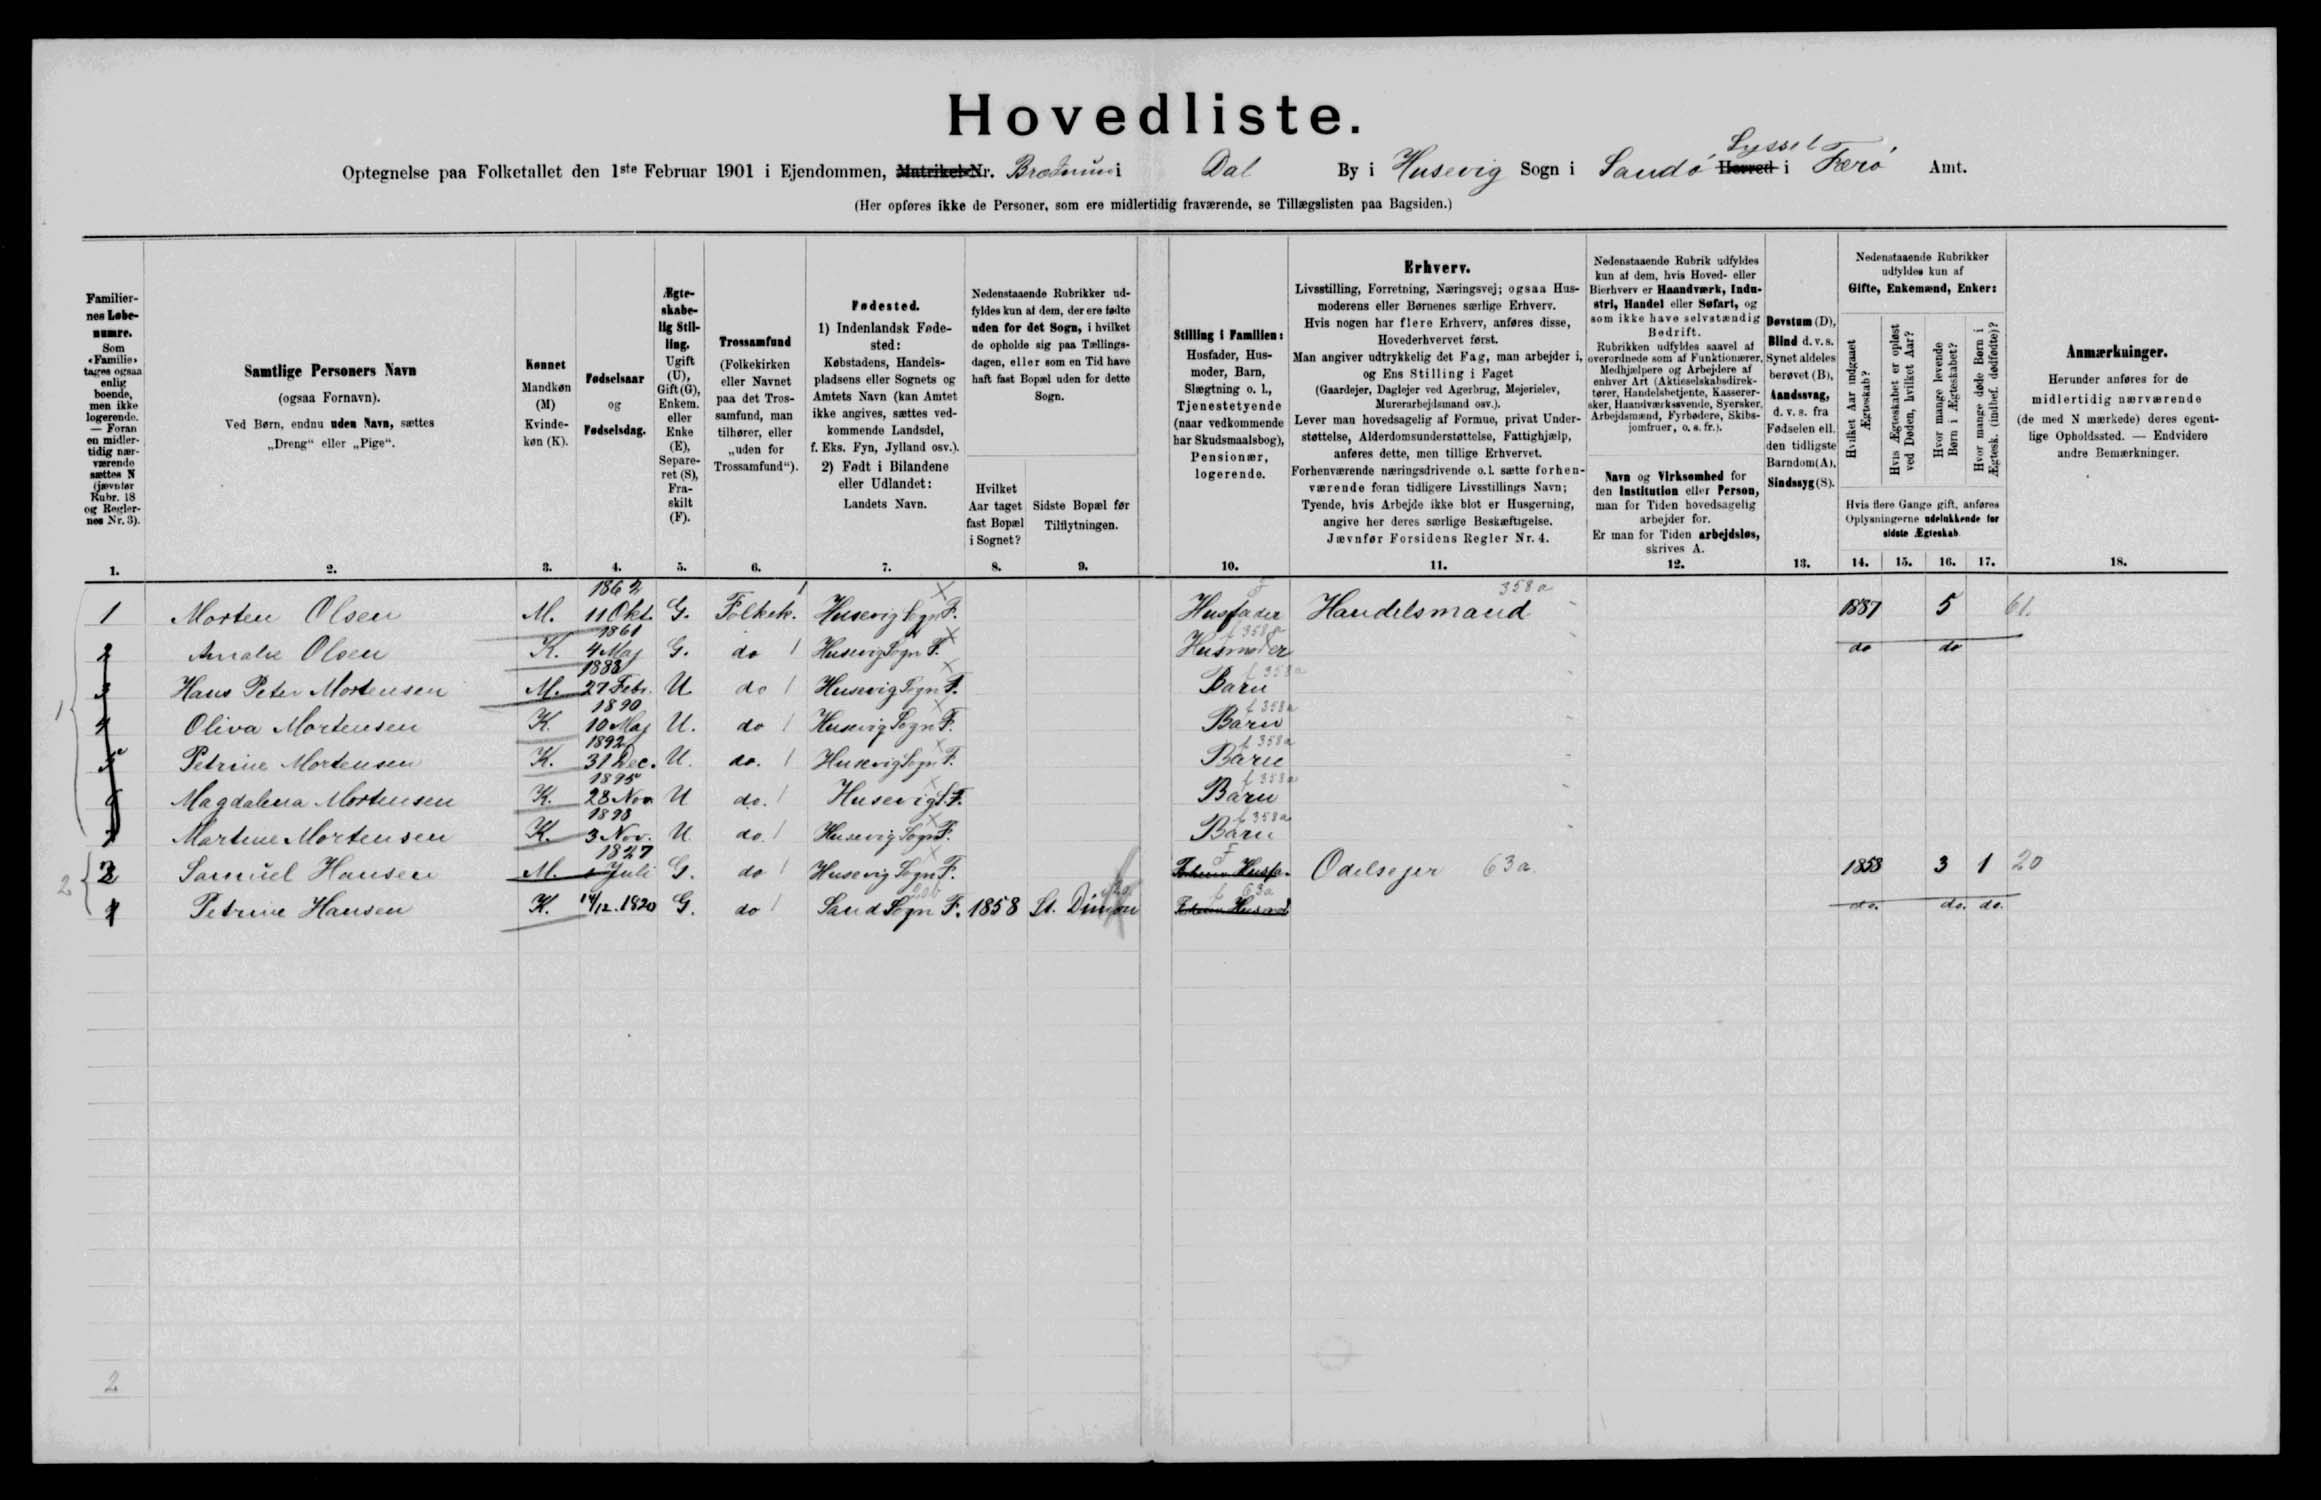 Hovedliste.
Lyssel
Optegnelse paa Folketallet den 1ste Februar 1901 i Ejendommen, Matrikel-Nr. i Dal By i Husevig Sogn i Sandø Herred i Færø Amt.
(Her opføres ikke de Personer, som ere midlertidig fraværende, se Tillægslisten paa Bagsiden.)
Familiernes Løbenumre.
Som «Familie» tages ogsaa enlig boende, men ikke logerende. — Foran en midlertidig nærværende sættes N (jævnfør Rubr. 18 og Reglernes Nr. 3).
Samtlige Personers Navn
(ogsaa Fornavn).
Ved Børn, endnu uden Navn, sættes
„Dreng“ eller „Pige“.
Kønnet
Mandkøn (M)
Kvindekøn (K).
Fødselsaar
og
Fødselsdag.
Ægteskabelig Stilling.
Ugift (U), Gift (G), Enkem. eller Enke (E), Separeret (S), Fraskilt (F).
Trossamfund
(Folkekirken eller Navnet paa det Trossamfund, man tilhører, eller „uden for Trossamfund“).
Fødested.
1) Indenlandsk Fødested:
Købstadens, Handelspladsens eller Sognets og Amtets Navn (kan Amtet ikke angives, sættes vedkommende Landsdel, f. Eks. Fyn, Jylland osv.).
2) Født i Bilandene eller Udlandet:
Landets Navn.
Nedenstaaende Rubrikker udfyldes kun af dem, der ere fødte uden for det Sogn, i hvilket de opholde sig paa Tællingsdagen, eller som en Tid have haft fast Bopæl uden for dette Sogn.
Hvilket Aar taget fast Bopæl i Sognet?
Sidste Bopæl før Tilflytningen.
Stilling i Familien:
Husfader, Husmoder, Barn, Slægtning o. l., Tjenestetyende (naar vedkommende har Skudsmaalsbog), Pensionær, logerende.
Erhverv.
Livsstilling, Forretning, Næringsvej; ogsaa Husmoderens eller Børnenes særlige Erhverv.
Hvis nogen har flere Erhverv, anføres disse, Hovederhvervet først.
Man angiver udtrykkelig det Fag, man arbejder i, og Ens Stilling i Faget
(Gaardejer, Daglejer ved Agerbrug, Mejerielev, Murerarbejdsmand osv.).
Lever man hovedsagelig af Formue, privat Understøttelse, Alderdomsunderstøttelse, Fattighjælp, anføres dette, men tillige Erhvervet.
Forhenværende næringsdrivende o. l. sætte forhenværende foran tidligere Livsstillings Navn;
Tyende, hvis Arbejde ikke blot er Husgerning, angive her deres særlige Beskæftigelse.
Jævnfør Forsidens Regler Nr. 4.
Nedenstaaende Rubrik udfyldes kun af dem, hvis Hoved- eller Bierhverv er Haandværk, Industri, Handel eller Søfart, og som ikke have selvstændig Bedrift.
Rubrikken udfyldes saavel af overordnede som af Funktionærer, Medhjælpere og Arbejdere af enhver Art (Aktieselskabsdirektører, Handelsbetjente, Kasserersker, Haandværkssvende, Syersker, Arbejdsmænd, Fyrbødere, Skibsjomfruer, o. s. fr.).
Navn og Virksomhed for den Institution eller Person, man for Tiden hovedsagelig arbejder for.
Er man for Tiden arbejdsløs, skrives A.
Døvstum (D), Blind d. v. s. Synet aldeles berøvet (B), Aandssvag, d. v. s. fra Fødselen ell. den tidligste Barndom (A), Sindssyg (S).
Nedenstaaende Rubrikker udfyldes kun af
Gifte, Enkemænd, Enker:
Hvilket Aar indgaaet Ægteskab?
Hvis Ægteskabet er opløst ved Døden, hvilket Aar?
Hvor mange levende Børn i Ægteskabet?
Hvor mange døde Børn i Ægtesk. (indbef. dødfødte)?
Hvis flere Gange gift, anføres Oplysningerne udelukkende for sidste Ægteskab.
Anmærkninger.
Herunder anføres for de midlertidig nærværende (de med N mærkede) deres egentlige Opholdssted. — Endvidere andre Bemærkninger.
1. 2. 3. 4. 5. 6. 7. 8. 9. 10. 11. 12. 13. 14. 15. 16. 17. 18.
1 Morten Olsen M. 1862 11 Okt. G. Folkek. Husevig Sogn F. Husfader Handelsmand 358a 1887 5 61.
2 Amalie Olsen K. 1861 4 Maj G. do Husevig Sogn F. Husmoder 358a do do
3 Hans Peter Mortensen M. 1888 27 Febr. U. do Husevig Sogn F. Barn 358a
4 Oliva Mortensen K. 1890 10 Maj U. do Husevig Sogn F. Barn 358a
5 Petrine Mortensen K. 1892 31 Dec. U. do. Husevig Sogn F. Barn 358a
6 Magdalena Mortensen K. 1895 28 Nov U do. Husevig S. F. Barn 358a
7 Martine Mortensen K. 1898 3 Nov. U. do. Husevig Sogn F. Barn 358a
2 Samuel Hansen M. 1827 Juli G. do Husevig Sogn F. Odelsejer 63a. 1853 3 1 20
Petrine Hansen K. 14/12. 1820 G. do Sand Sogn F. 1858 St. Dimon 63a do. do. do.
2